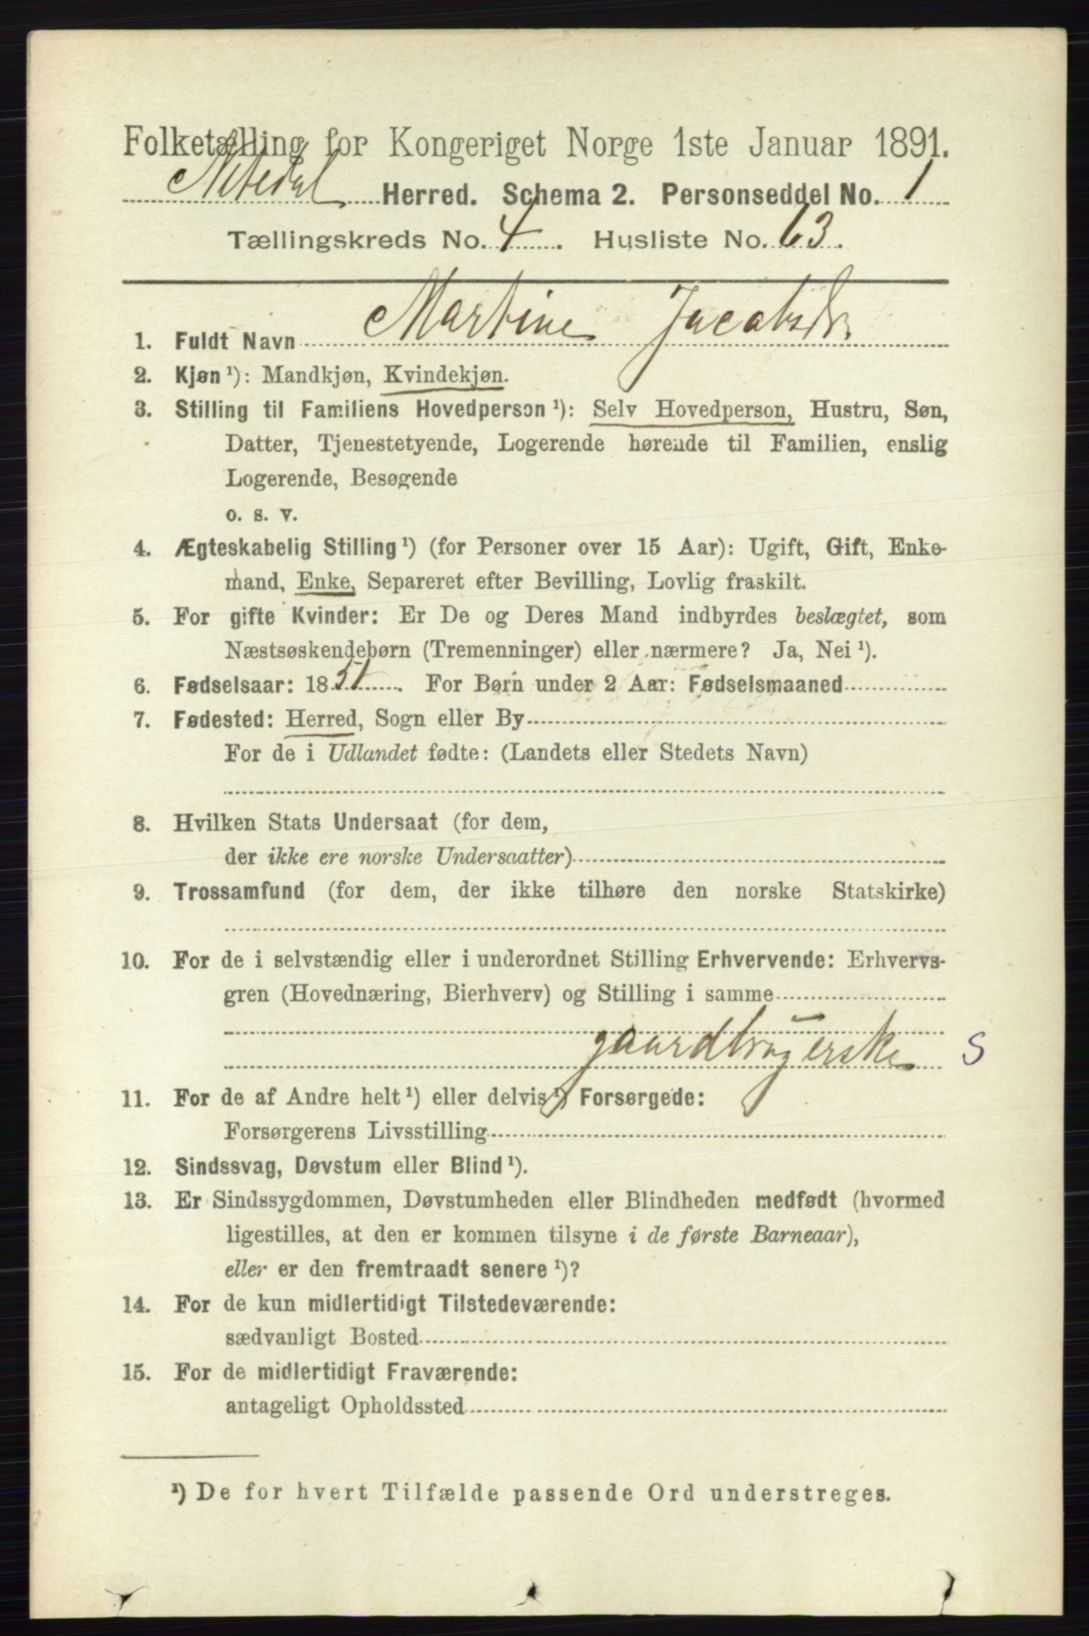 Folketælling for Kongeriget Norge 1ste Januar 1891.
Nitedal Herred. Schema 2. Personseddel No. 1
Tællingskreds No. 4. Husliste No. 63.
1. Fuldt Navn Martine Jacobsdr.
2. Kjøn ¹): Mandkjøn, Kvindekjøn.
3. Stilling til Familiens Hovedperson ¹): Selv Hovedperson, Hustru, Søn,
Datter, Tjenestetyende, Logerende hørende til Familien, enslig
Logerende, Besøgende
o. s. v.
4. Ægteskabelig Stilling ¹) (for Personer over 15 Aar): Ugift, Gift, Enke-
mand, Enke, Separeret efter Bevilling, Lovlig fraskilt.
5. For gifte Kvinder: Er De og Deres Mand indbyrdes beslægtet, som
Næstsøskendebørn (Tremenninger) eller nærmere? Ja, Nei ¹).
6. Fødselsaar: 1851. For Børn under 2 Aar: Fødselsmaaned
7. Fødested: Herred, Sogn eller By
For de i Udlandet fødte: (Landets eller Stedets Navn)
8. Hvilken Stats Undersaat (for dem,
der ikke ere norske Undersaatter)
9. Trossamfund (for dem, der ikke tilhøre den norske Statskirke)
10. For de i selvstændig eller i underordnet Stilling Erhvervende: Erhvervs-
gren (Hovednæring, Bierhverv) og Stilling i samme
gaardbrugerske S
11. For de af Andre helt ¹) eller delvis ¹) Forsørgede:
Forsørgerens Livsstilling
12. Sindssvag, Døvstum eller Blind ¹).
13. Er Sindssygdommen, Døvstumheden eller Blindheden medfødt (hvormed
ligestilles, at den er kommen tilsyne i de første Barneaar),
eller er den fremtraadt senere ¹)?
14. For de kun midlertidigt Tilstedeværende:
sædvanligt Bosted
15. For de midlertidigt Fraværende:
antageligt Opholdssted
¹) De for hvert Tilfælde passende Ord understreges.